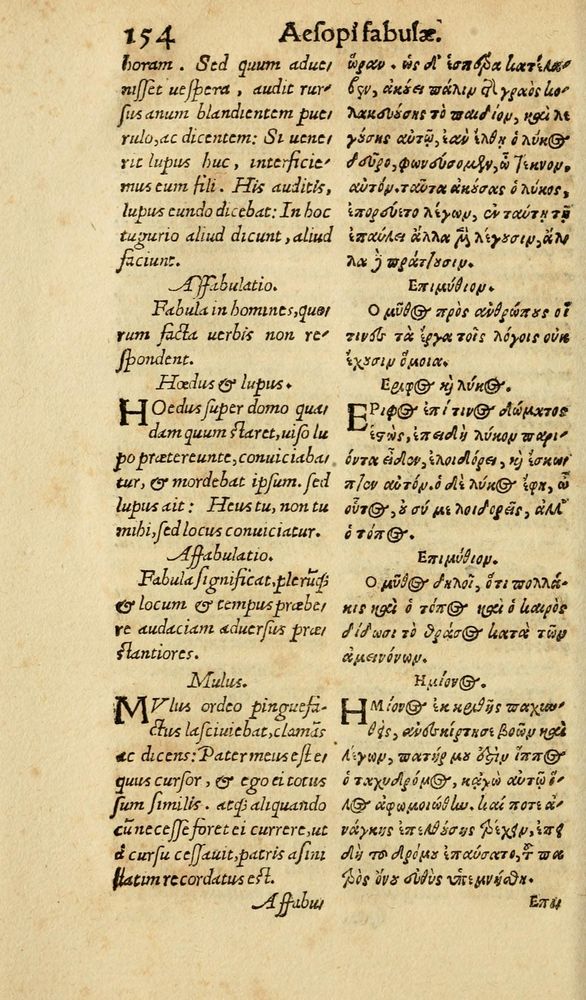 154 Aesopi fabulæ.
horam. Sed quum adue-
nisset uespera, audit rur-
sus anum blandientem pue-
rulo, ac dicentem: Si uene-
rit lupus huc, interficie-
mus eum fili. His auditis,
lupus eundo dicebat: In hoc
tugurio aliud dicunt, aliud
faciunt.
Affabulatio.
Fabula in homines, quo-
rum facta uerbis non re-
spondent.
Hœdus & lupus.
HOedus super domo qua-
dam quum staret, uiso lu
po prætereunte, conuiciaba-
tur, & mordebat ipsum. sed
lupus ait: Heus tu, non tu
mihi, sed locus conuiciatur.
Affabulatio.
Fabula significat, plerunq;
& locum & tempus præbe-
re audaciam aduersus præ-
stantiores.
Mulus.
MVlus ordeo pinguefa-
ctus lasciuiebat, clamãs
ac dicens: Pater meus est e-
quus cursor, & ego ei totus
sum similis. atq; aliquando
cũ necesse foret ei currere, ut
à cursu cessauit, patris asini
statim recordatus est.
Affabu-
ὥραν. ὡς δ' ἑσπέρα κατέλα-
βεν, ἀκούει πάλιν τῆς γραὸς κο-
λακευούσης τὸ παιδίον, καὶ λε-
γούσης αὐτῷ, ἐὰν ἔλθῃ ὁ λύκος
δεῦρο, φονεύσομεν, ὦ τέκνον,
αὐτόν. ταῦτα ἀκούσας ὁ λύκος,
ἐπορεύετο λέγων, ἐν ταύτῃ τῇ
ἐπαύλει ἄλλα μὲν λέγουσιν, ἄλ-
λα δὲ πράττουσιν.
Επιμύθιον.
Ο μῦθος πρὸς ἀνθρώπους οἵ
τινες τὰ ἔργα τοῖς λόγοις οὐκ
ἔχουσιν ὅμοια.
Εριφος καὶ λύκος.
ΕΡιφος ἐπί τινος δώματος
ἑστὼς, ἐπειδὴ λύκον παρι-
όντα εἶδεν, ἐλοιδόρει, καὶ ἔσκω-
πτεν αὐτόν. ὁ δὲ λύκος ἔφη, ὦ
οὗτος, οὐ σύ με λοιδορεῖς, ἀλλ'
ὁ τόπος.
Επιμύθιον.
Ο μῦθος δηλοῖ, ὅτι πολλά-
κις καὶ ὁ τόπος καὶ ὁ καιρὸς
δίδωσι τὸ θράσος κατὰ τῶν
ἀμεινόνων.
Ημίονος.
ΗΜίονος ἐκ κριθῆς παχυν-
θεὶς, ἀνεσκίρτησε βοῶν καὶ
λέγων, πατήρ μου ἐστὶν ἵππος
ὁ ταχυδρόμος, κᾀγὼ αὐτῷ ὅ-
λος ἀφωμοιώθην. καί ποτε ἀ-
νάγκης ἐπελθούσης τρέχειν, ἐπει
δὴ τοῦ δρόμου ἐπαύσατο, τοῦ πα
τρὸς ὄνου εὐθὺς ὑπεμνήσθη.
Επι-